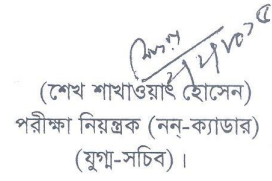 (শেখ শাখাওয়াৎ হোসেন)
পরীক্ষা নিয়ন্ত্রক (নন্-ক্যাডার)
(যুগ্ম-সচিব) ।